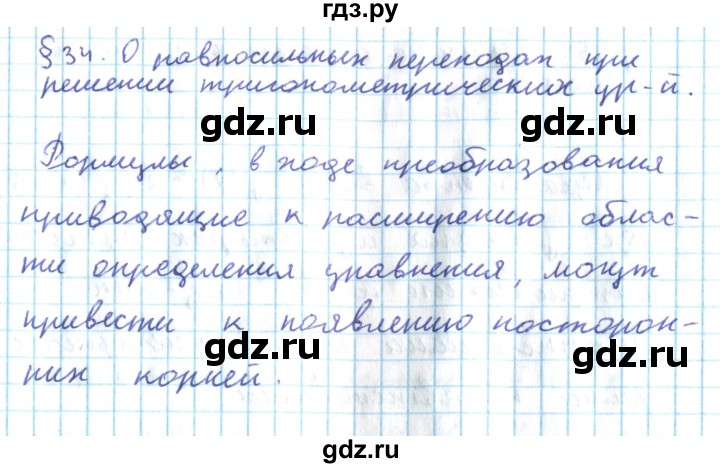 гдз.ру
§ 34. О равносильных переходах при
решении тригонометрических ур-й.
gdz.ru gdz.ru
Формулы, в ходе преобразования
приводящие к расширению облас-
gdz.ru gdz.ru
ти определения уравнения, могут
привести к появлению посторон-
gdz.ru gdz.ru
них корней.
gdz.ru